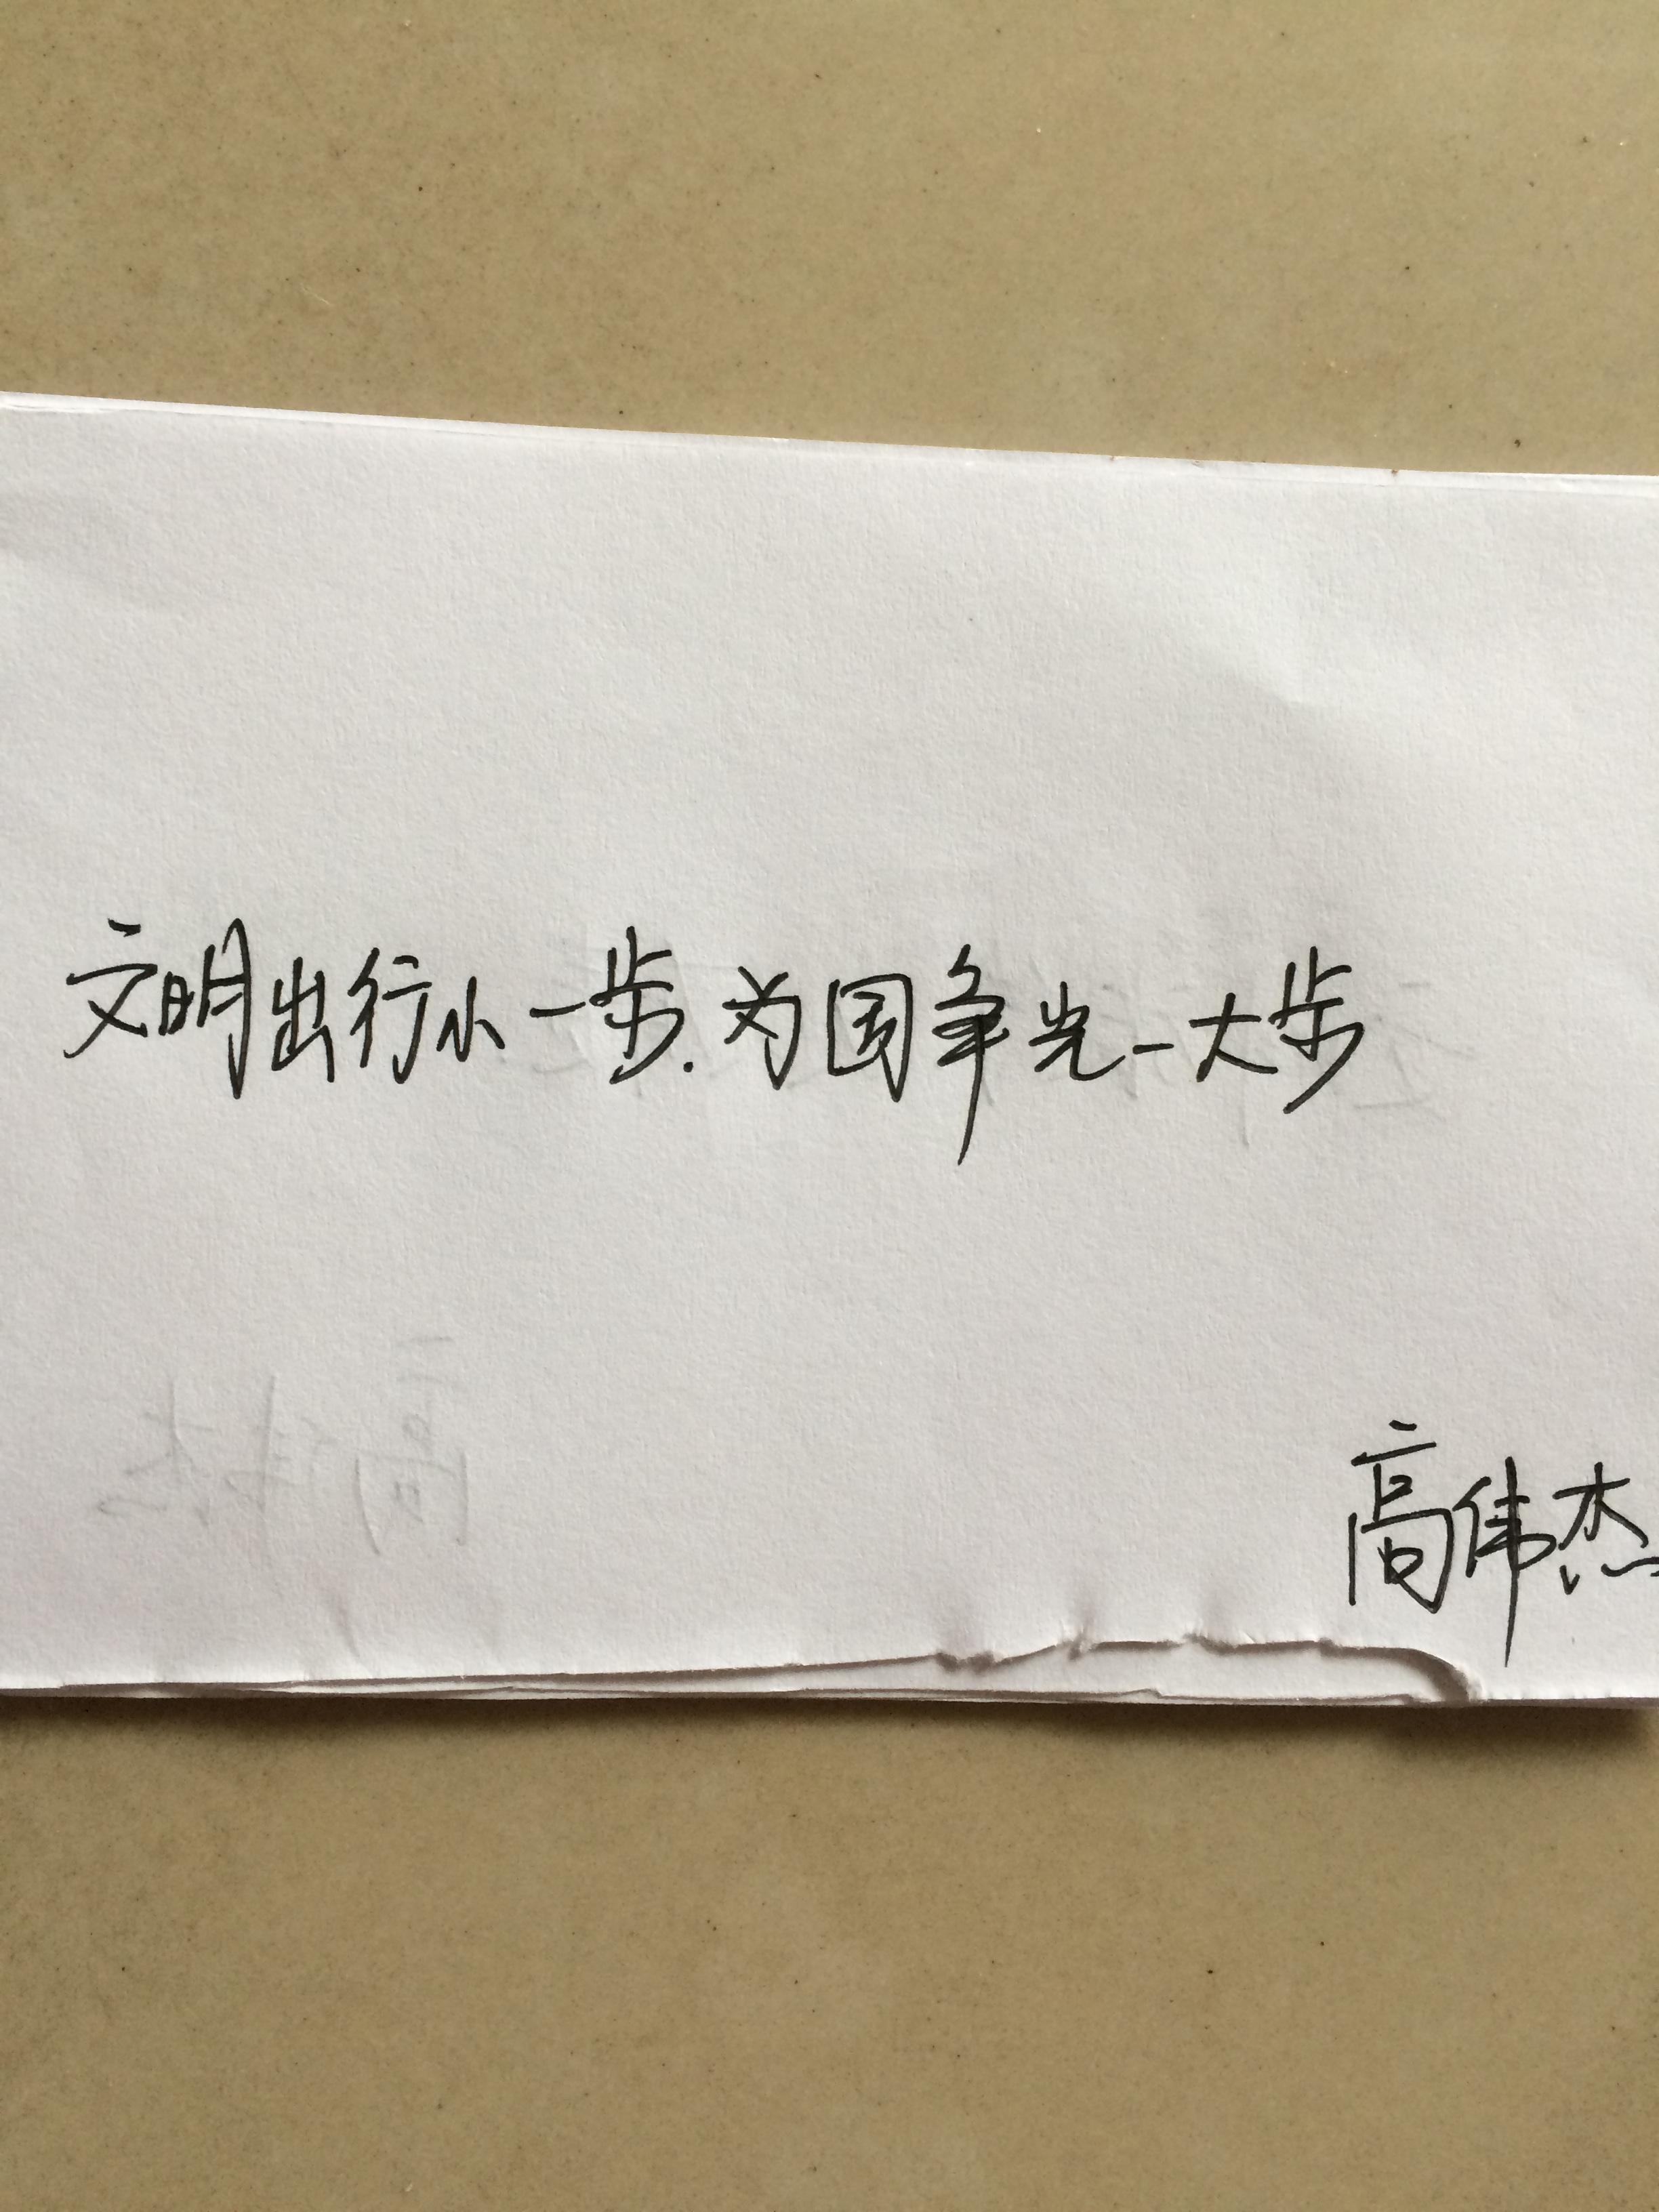 文明出行小一步.为国争光一大步
高伟杰